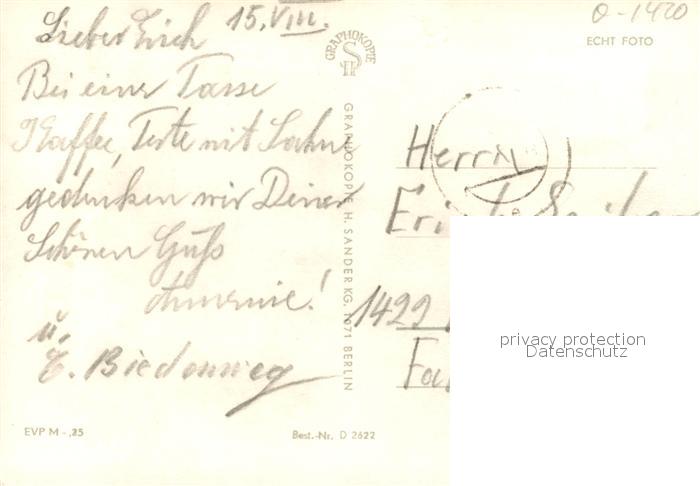 15. VIII.
Lieber Erich
Bei einer Tasse
Kaffee, Torte mit Sahne
gedenken wir Deiner
Schönen Gruß
Annemie!
u.
E. Biedenweg
GRAPHOKOPIE
GRAPHOKOPIE H. SANDER KG, 1071 BERLIN
O-1420
ECHT FOTO
Herrn
1422
privacy protection
Datenschutz
EVP M -,25
Best.-Nr. D 2622